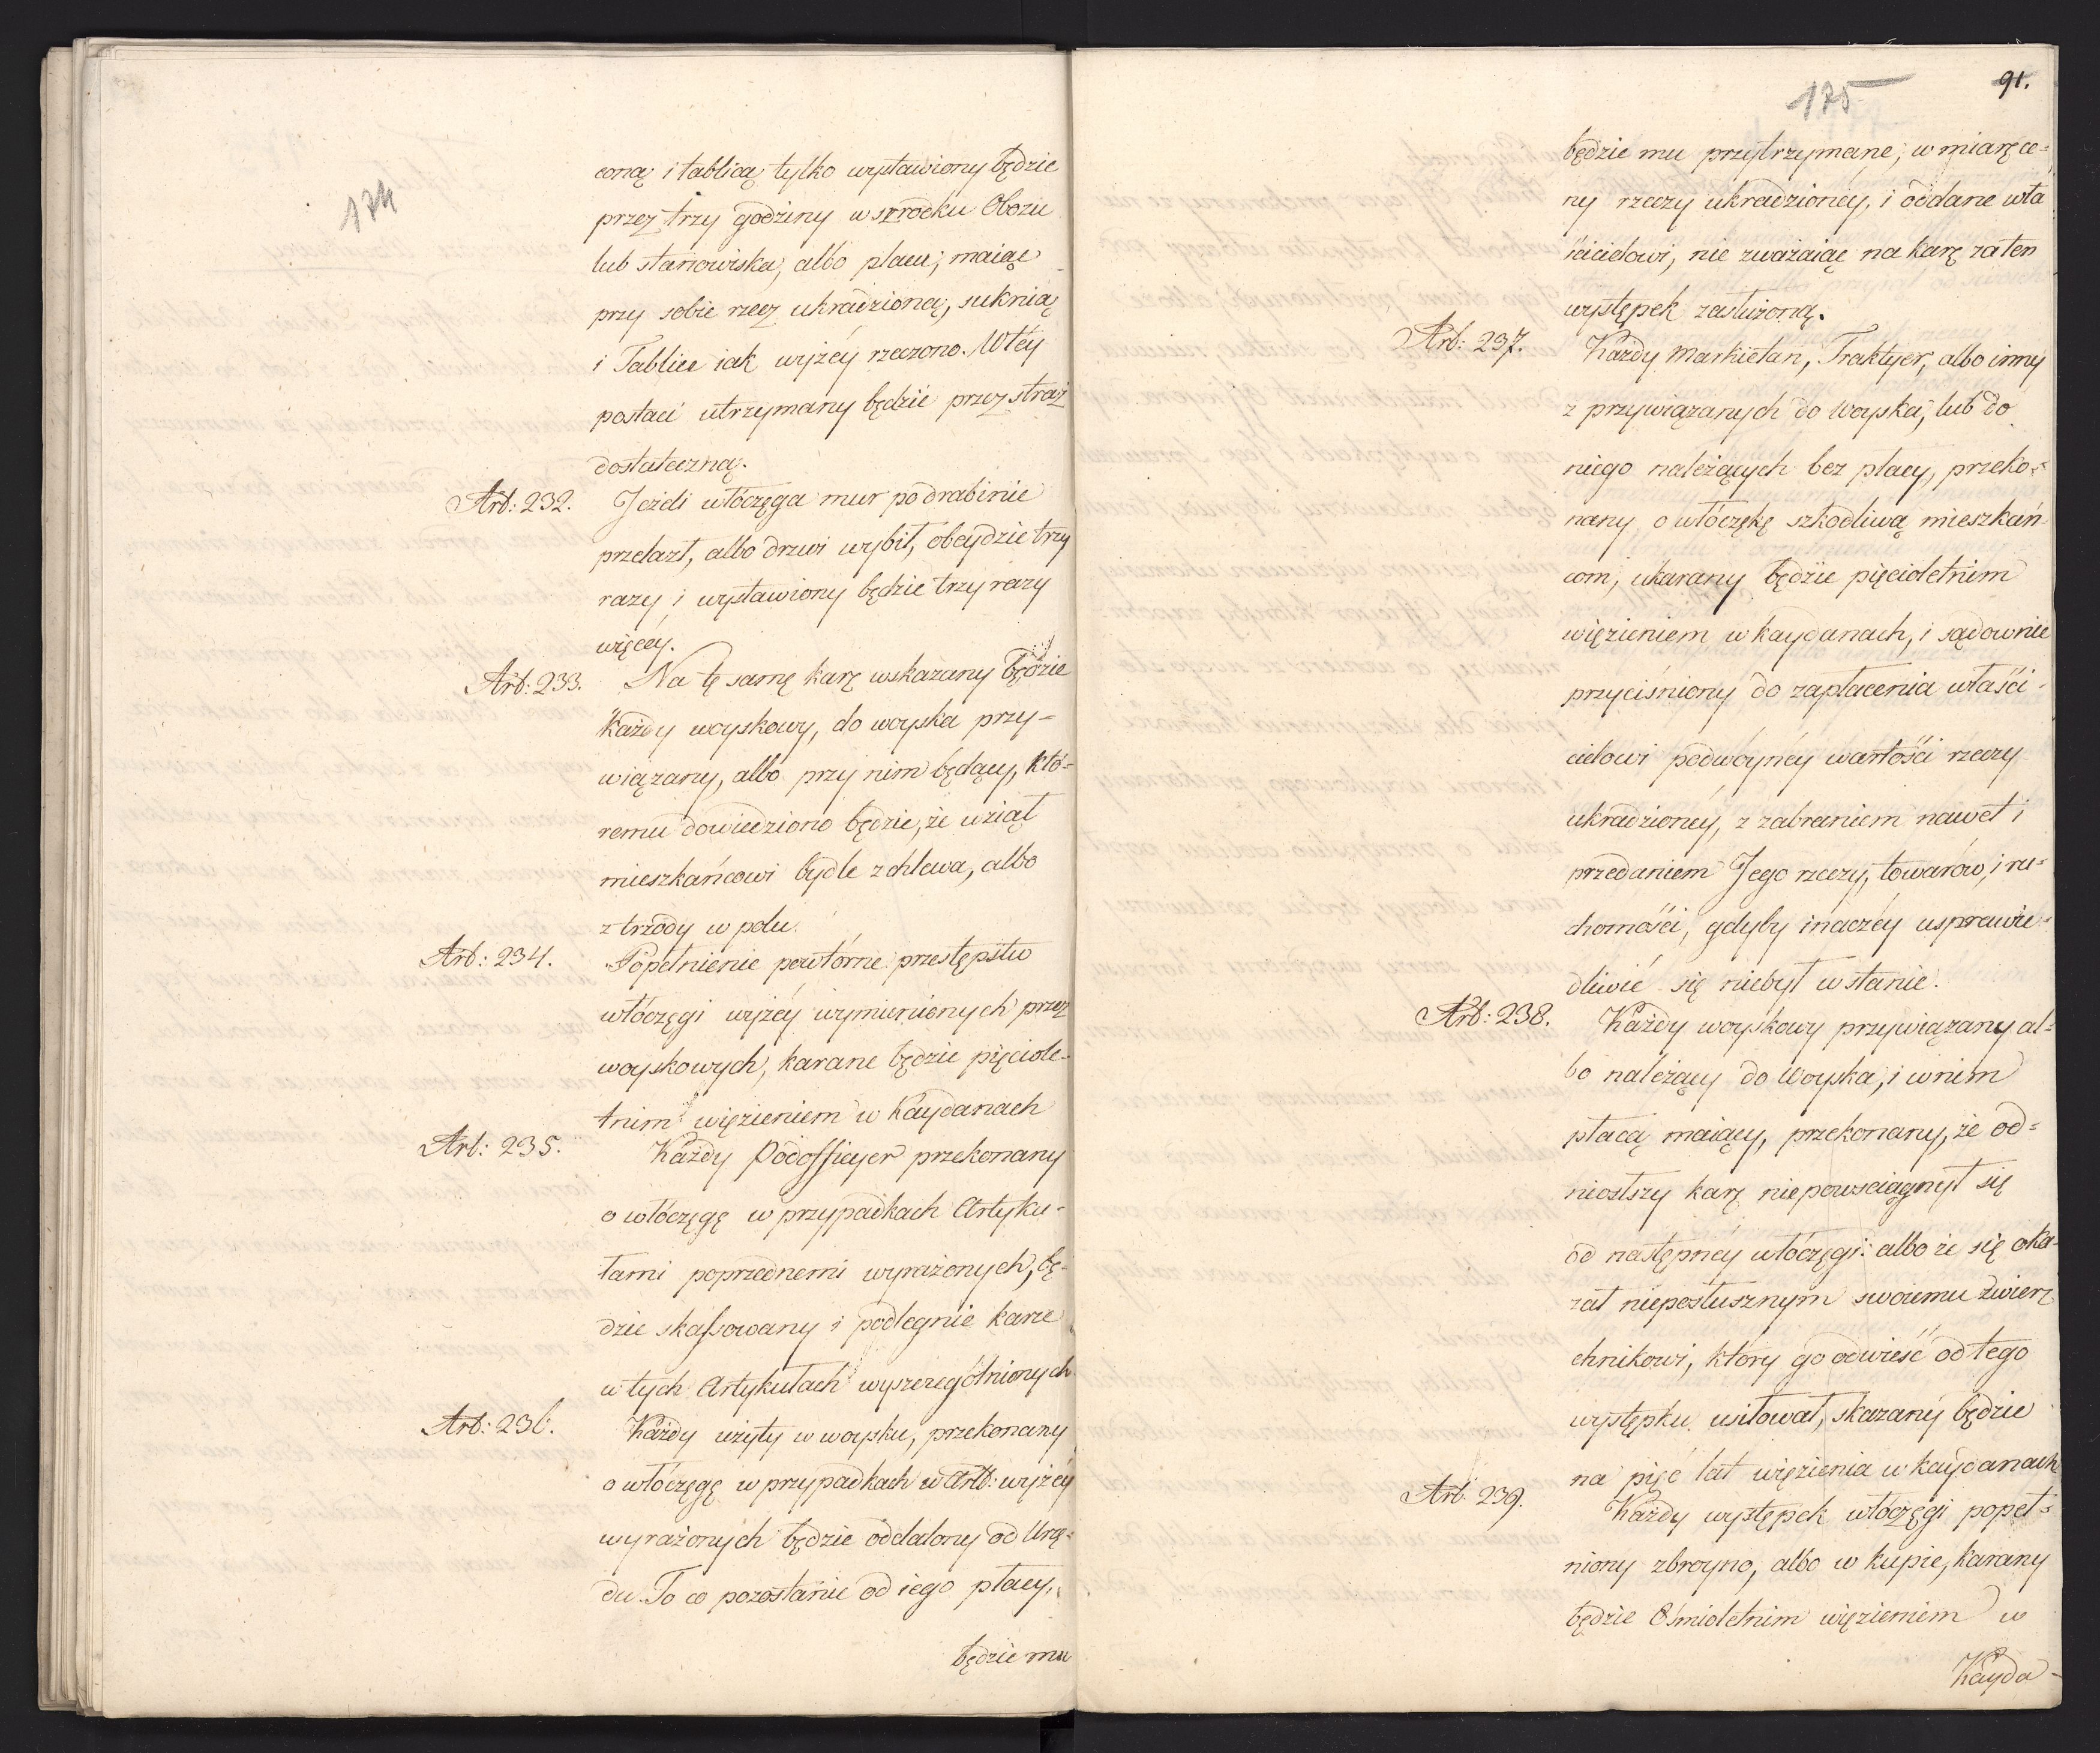 174
coną i tablicą tylko wystawiony będzie
przez trzy godziny w srzodku Obozu
lub stanowiska, albo placu; maiąc
przy sobie rzecz ukradzioną, suknią
i Tablice iak wyżéy rzeczono. W téy
postaci utrzymany będzie przez straż
dostateczną.
Art: 232. Jeżeli włóczęga mur po drabinie
przelazł, albo drzwi wybił, obeydzie trzy
razy i wystawiony będzie trzy razy
więcéy.
Art: 233. Na tę samę karę wskazany będzie
każdy woyskowy, do woyska przy=
wiązany, albo przy nim będący, któ=
remu dowiedziono będzie, że wziął
mieszkańcowi bydle z chlewa, albo
z trzody w polu.
Art: 234. Popełnienie powtórne przestępstw
włóczęgi wyżéy wymienionych przez
woyskowych, karane będzie pięciole=
tnim więzieniem w Kaydanach
Art: 235. Każdy Podofficyer przekonany
o włóczęgę w przypadkach Artyku=
łami poprzedniemi wyrażonych, bę=
dzie skassowany i podlegnie karze
w tych Artykułach wyszczególnionych
Art: 236. Każdy użyty w woysku, przekonany
o włóczęgę w przypadkach w Art: wyżéy
wyrażonych będzie oddalony od Urzę=
du. To co pozostanie od iego płacy,
będzie mu
175
91.
będzie mu przytrzymane, w miarę ce=
ny rzeczy ukradzionéy, i oddane wła
ścicielowi, nie zważaiąc na karę za ten
występek zasłużoną.
Art: 237. Każdy Markietan, Traktyer, albo inny
z przywiązanych do Woyska, lub do
niego należących bez płacy, przeko=
nany o włóczękę szkodliwą mieszkań
com, ukarany będzie pięcioletnim
więzieniem w kaydanach, i sądownie
przyciśniony do zapłacenia właści=
cielowi podwóynéy wartości rzeczy
ukradzionéy, z zabraniem nawet i
przedaniem Jego rzeczy, towarów, i ru=
chomości, gdyby inaczéy usprawie=
dliwić się niebył w stanie.
Art: 238. Każdy woyskowy przywiązany al=
bo należący do Woyska, i w nim
płacą maiący, przekonany, że od=
niosłszy karę niepowsciągnył się
od następnéy włóczęgi: albo że się oka=
zał nieposłusznym swoiemu zwierz
chnikowi, który go odwieść od tego
występku usiłował, skazany będzie
na pięć lat więzienia w kaydanach
Art: 239. Każdy występek włóczęgi popeł=
niony zbroyno, albo w kupie, karany
będzie Ośmioletnim więzieniem w
Kayda=